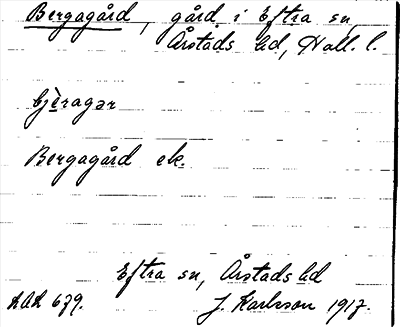 Bergagård, gård i Eftra sn,
Årstads hd, Hall. l.
bjèragar
Bergagård ek.
Eftra sn, Årstads hd
KAK 679. J. Karlsson 1917.